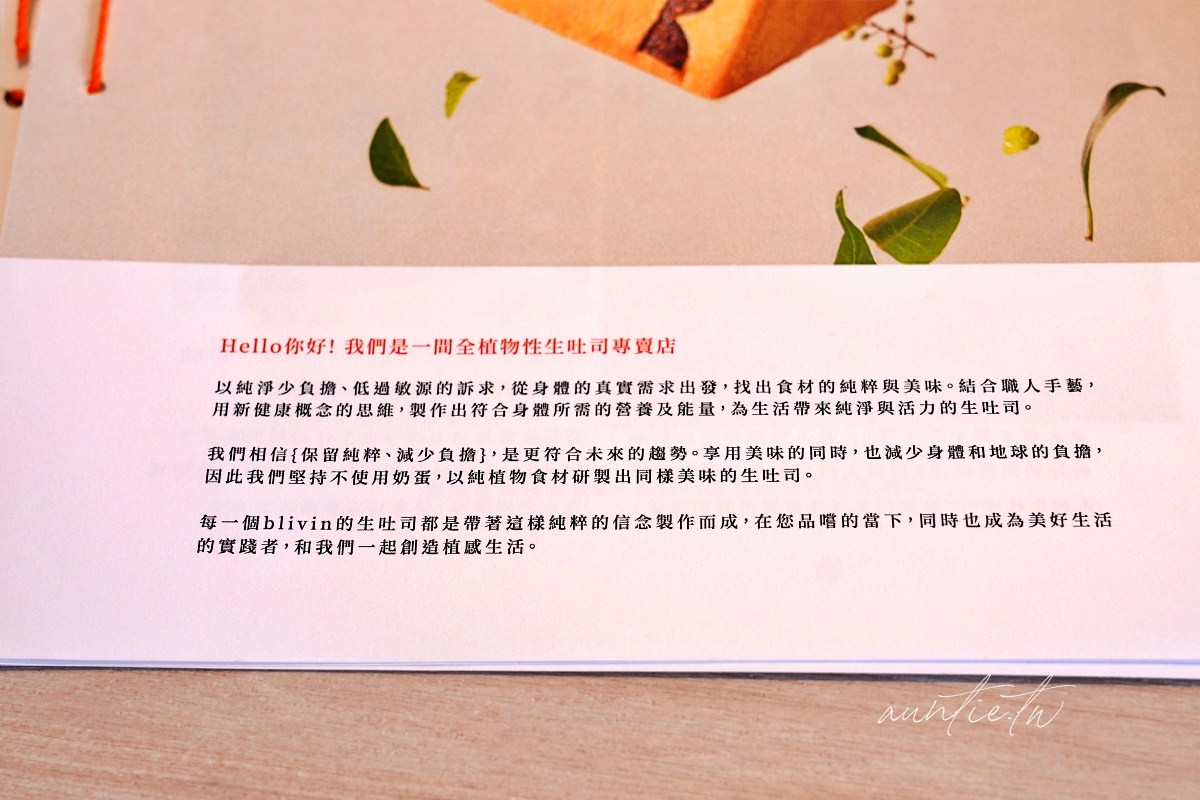 Hello你好! 我們是一間全植物性生吐司專賣店
以純淨少負擔、低過敏源的訴求,從身體的真實需求出發,找出食材的純粹與美味。結合職人手藝,
用新健康概念的思維,製作出符合身體所需的營養及能量,為生活帶來純淨與活力的生吐司。
我們相信{保留純粹、減少負擔},是更符合未來的趨勢。享用美味的同時,也減少身體和地球的負擔,
因此我們堅持不使用奶蛋,以純植物食材研製出同樣美味的生吐司。
每一個blivin的生吐司都是帶著這樣純粹的信念製作而成,在您品嚐的當下,同時也成為美好生活
的實踐者,和我們一起創造植感生活。
auntie.tw